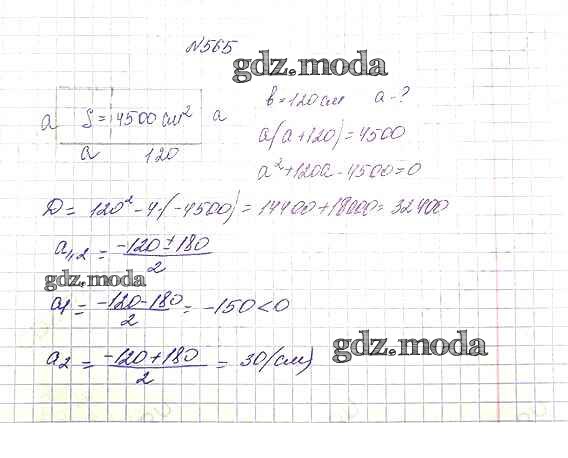 N565
gdz.moda
a S = 4500 см² a
a 120
в = 120 см a - ?
a(a+120) = 4500
a² + 120a - 4500 = 0
D = 120² - 4·(-4500) = 14400 + 18000 = 32400
a₁,₂ = (-120 ± 180) / 2
gdz.moda
a₁ = (-120 - 180) / 2 = -150 < 0
a₂ = (-120 + 180) / 2 = 30 (см)
gdz.moda